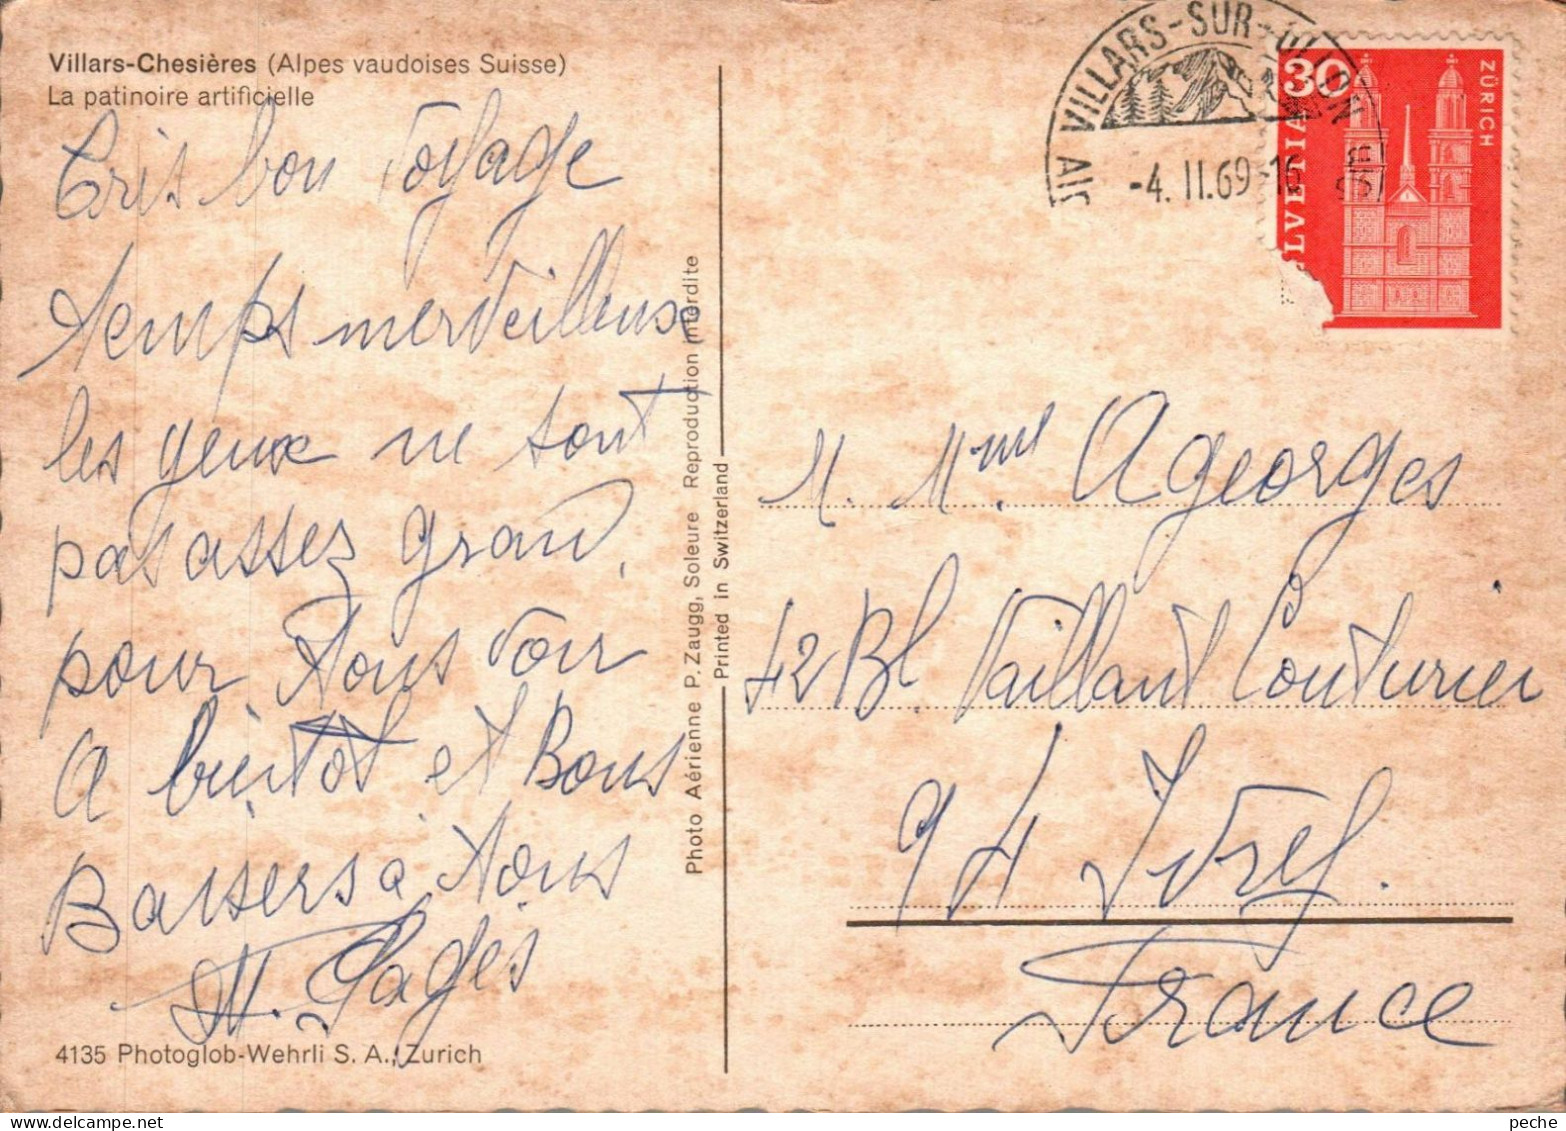 Villars-Chesières (Alpes vaudoises Suisse)
La patinoire artificielle
Très bon voyage
temps merveilleux
les yeux ne sont
pas assez grand,
pour tous voir
A bientôt et Bons
Baisers à tous
M. Pagès
4135 Photoglob-Wehrli S. A., Zurich
Photo Aérienne P. Zaugg, Soleure Reproduction interdite
Printed in Switzerland
VILLARS-SUR-OLLON
-4. II. 69-16
30
HELVETIA
ZÜRICH
M. Mme Ageorges
42 Bl. Vaillant Couturier
94 Ivry.
France
peche